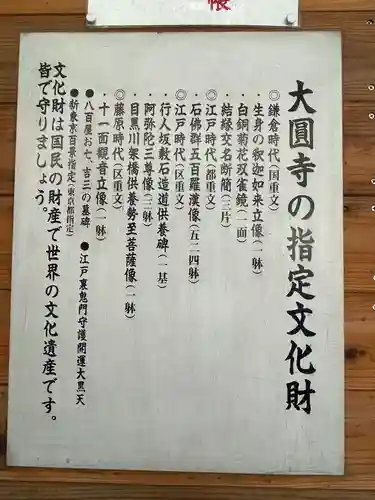 帳
大圓寺の指定文化財
◎鎌倉時代（国重文）
・生身の釈迦如来立像（一躰）
・白銅菊花双雀鏡（一面）
・結縁交名断簡（三片）
◎江戸時代（都重文）
・石佛群五百羅漢像（五二四躰）
◎江戸時代（区重文）
・行人坂敷石造道供養碑（一基）
・阿弥陀三尊像（三躰）
・目黒川架橋供養勢至菩薩像（一躰）
◎藤原時代（区重文）
・十一面観音立像（一躰）
●八百屋お七、吉三の墓碑　●江戸裏鬼門守護開運大黒天
●新東京百景指定（東京都指定）
文化財は国民の財産で世界の文化遺産です。
皆で守りましょう。